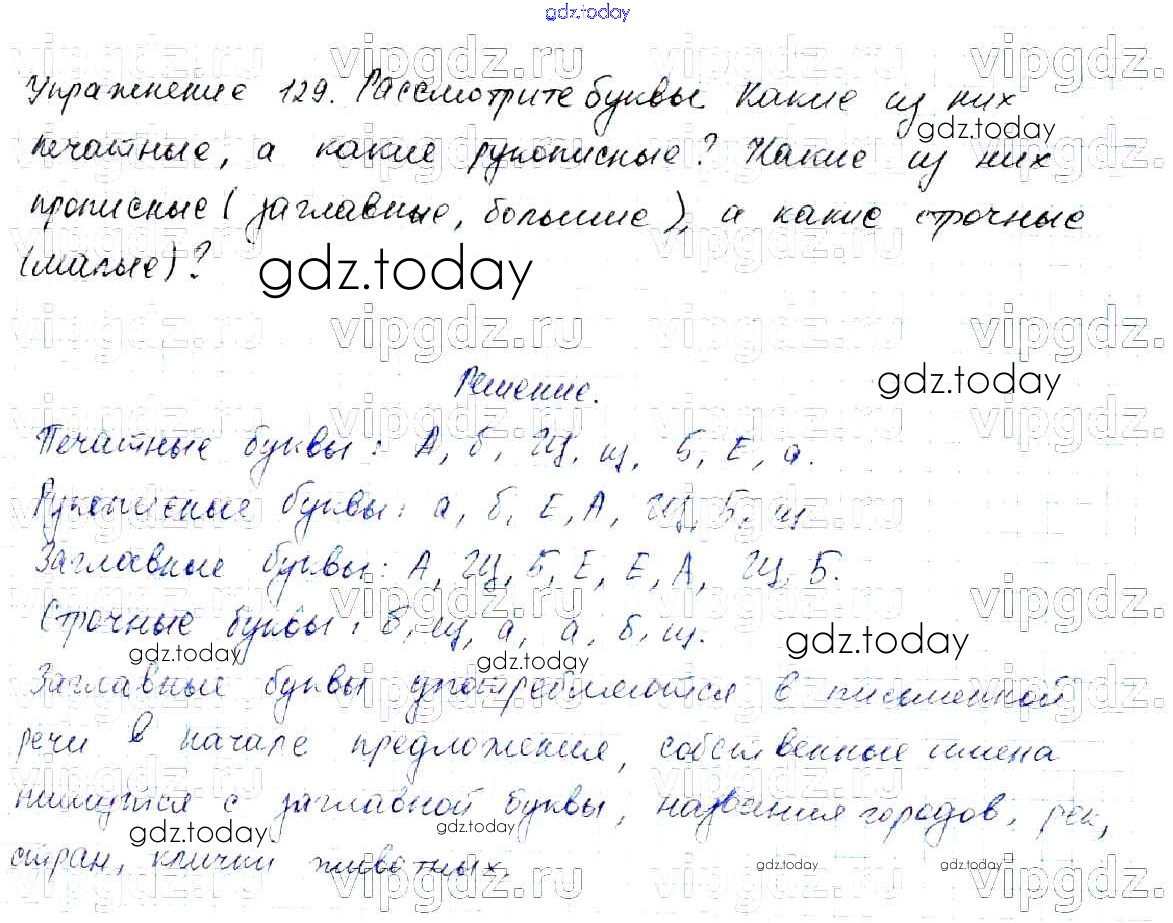 gdz.today
Упражнение 129. Рассмотрите буквы. Какие из них
gdz.today
печатные, а какие рукописные? Какие из них
прописные (заглавные, большие), а какие строчные
(малые)?
gdz.today
vipgdz.ru
Решение.
gdz.today
Печатные буквы: А, б, Щ, щ, Б, Е, а.
Рукописные буквы: а, б, Е, А, Щ, Б, щ
Заглавные буквы: А, Щ, Б, Е, Е, А, Щ, Б.
Строчные буквы: б, щ, а, а, б, щ.
gdz.today gdz.today gdz.today
Заглавные буквы употребляются в письменной
речи в начале предложения, собственные имена
пишутся с заглавной буквы, названия городов, рек,
gdz.today gdz.today
стран, клички животных.
gdz.today gdz.today